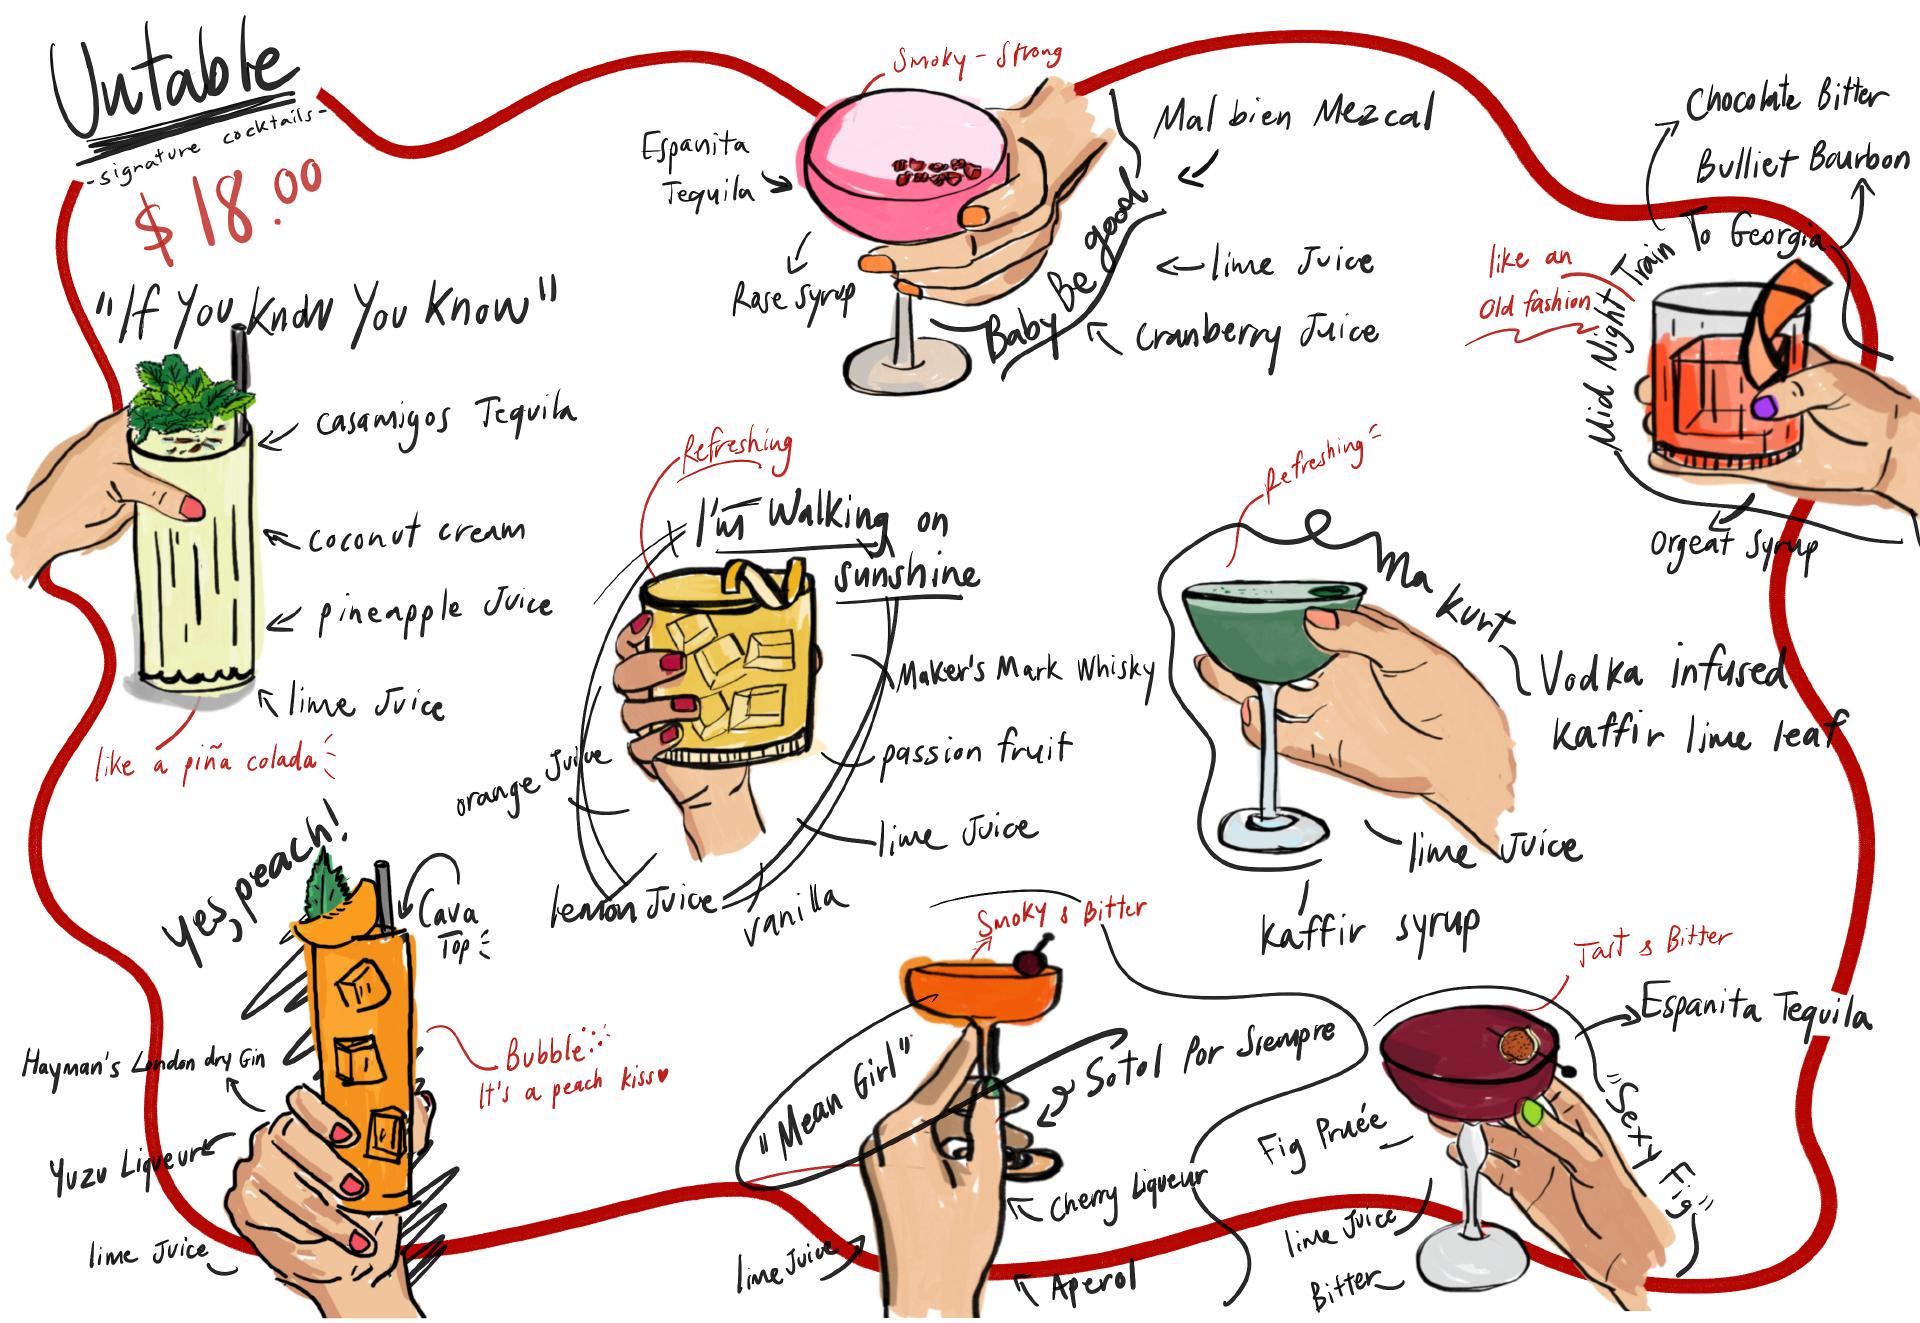 Untable
-signature cocktails-
$18.00
"If You Know You Know"
casamigos Tequila
coconut cream
pineapple Juice
lime Juice
like a piña colada
Smoky - Strong
Espanita
Tequila
Rose syrup
Baby Be good
Mal bien Mezcal
lime Juice
Cranberry Juice
Chocolate Bitter
Bulliet Bourbon
Mid Night Train To Georgia
like an
Old fashion
Orgeat Syrup
Refreshing
I'm Walking on
sunshine
Maker's Mark Whisky
passion fruit
lime Juice
vanilla
lemon Juice
orange Juice
Refreshing
Ma Kurt
Vodka infused
Kaffir lime leaf
lime Juice
Kaffir syrup
Yes, peach!
Cava
Top
Hayman's London dry Gin
Yuzu Liqueur
lime Juice
Bubble
It's a peach kiss♥
Smoky & Bitter
"Mean Girl"
Sotol Por Siempre
Cherry Liqueur
lime Juice
Aperol
Tart & Bitter
Espanita Tequila
"Sexy Fig"
Fig Pruée
lime Juice
Bitter